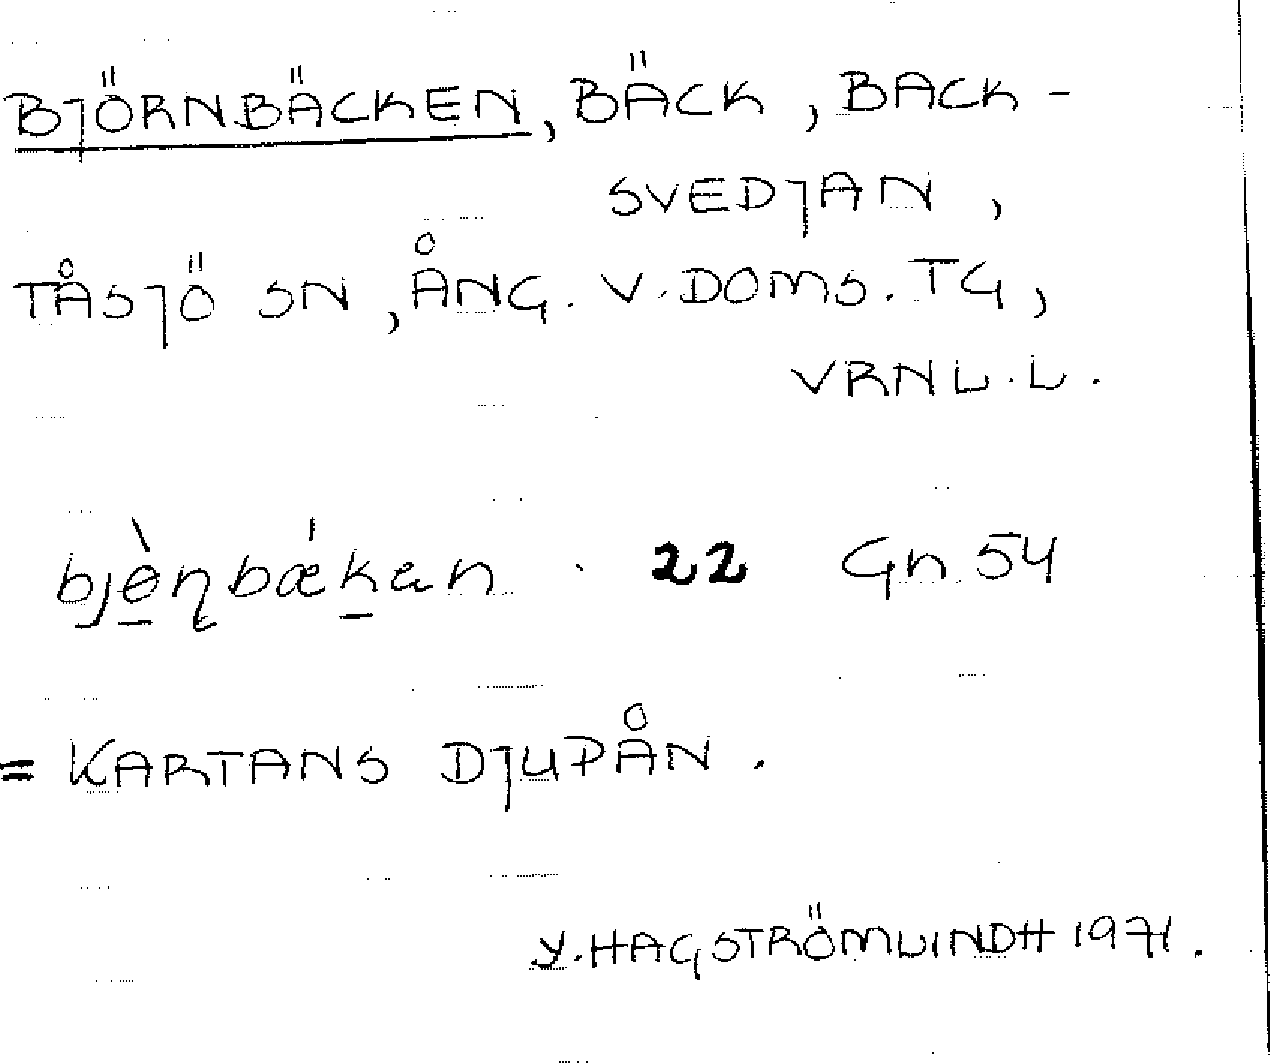 BJÖRNBÄCKEN, BÄCK, BACK-
SVEDJAN,
TÅSJÖ SN, ÅNG. V. DOMS. TG,
VRNL. L.
bjènbǽken · 22 Gn 54
= KARTANS DJUPÅN.
Y. HAGSTRÖMLINDH 1971.